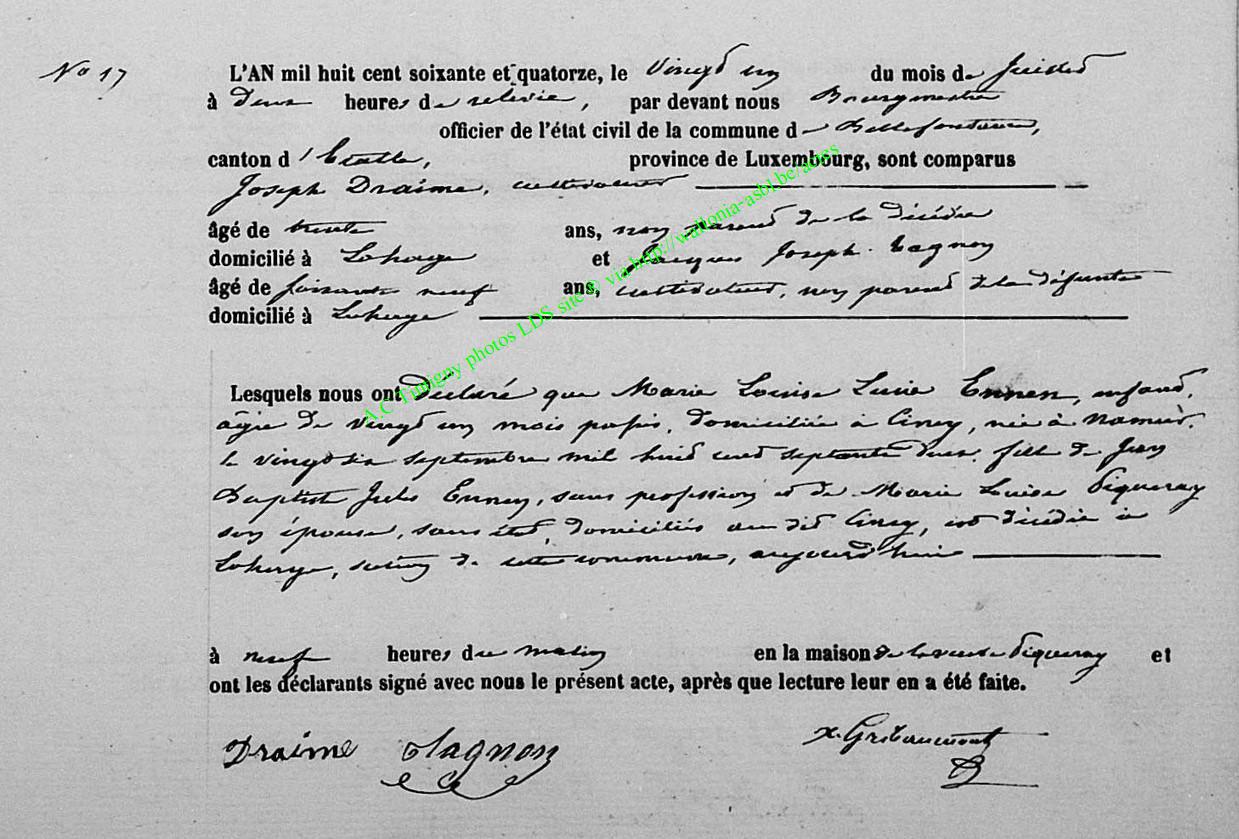 No 17
L'AN mil huit cent soixante et quatorze, le vingt un du mois de juillet
à deux heures de relevée, par devant nous Bourgmestre
officier de l'état civil de la commune de Bellefontaine,
canton d'Etalle, province de Luxembourg, sont comparus
Joseph Draime, cultivateur
âgé de trente ans, non parent de la décédée
domicilié à Lahage et Jacques Joseph Tagnon
âgé de soixante neuf ans, cultivateur, non parent de la défunte
domicilié à Lahage
Lesquels nous ont déclaré que Marie Louise Lucie Ennen, enfant,
âgée de vingt un mois passés, domiciliée à Ciney, née à Namur,
le vingt six septembre mil huit cent septante deux, fille de Jean
Baptist Jules Ennen, sans profession et de Marie Louise Piqueray
son épouse, sans état, domiciliés au dit Ciney, est décédée à
Lahage, section de cette commune, aujourd'hui
à neuf heures du matin en la maison de la veuve Piqueray et
ont les déclarants signé avec nous le présent acte, après que lecture leur en a été faite.
Draime Tagnon x. Gribaumont
A.C Tintigny photos LDS site © via http://wallonia-asbl.be/actes